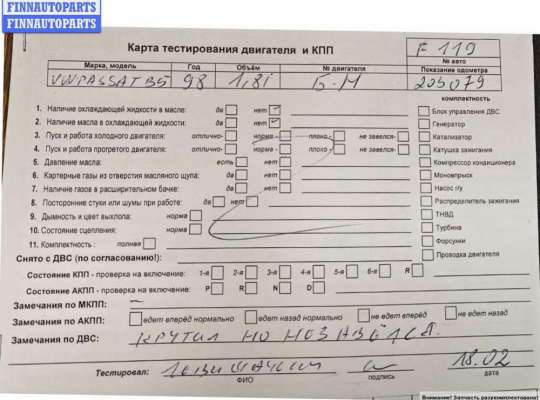 FINNAUTOPARTS
FINNAUTOPARTS
Карта тестирования двигателя и КПП
F 119
№ авто
Марка, модель Год Объём № двигателя Показание одометра
VW PASSAT B5 98 1,8i Б-Н 205079
комплектность
1. Наличие охлаждающей жидкости в масле: да нет
Блок управления ДВС
2. Наличие масла в охлаждающей жидкости: да нет
Генератор
3. Пуск и работа холодного двигателя: отлично- норма- плохо- не завелся-
Катализатор
4. Пуск и работа прогретого двигателя: отлично- норма- плохо- не завелся-
Катушка зажигания
5. Давление масла: есть нет
Компрессор кондиционера
6. Картерные газы из отверстия масляного щупа: да нет
Моновпрыск
7. Наличие газов в расширительном бачке: да нет
Насос г/у
8. Посторонние стуки или шумы при работе: да нет
Распределитель зажигания
9. Дымность и цвет выхлопа: норма
ТНВД
10. Состояние сцепления: норма
Турбина
11. Комплектность : полная
Форсунки
Снято с ДВС (по согласованию!):
Проводка двигателя
Состояние КПП - проверка на включение: 1-я 2-я 3-я 4-я 5-я 6-я R
Состояние АКПП - проверка на включение: P R N D
Замечания по МКПП: –
Замечания по АКПП: едет вперёд нормально едет назад нормально не едет вперёд не едет назад
Замечания по ДВС: крутил но не завёлся.
Тестировал: 18.02
ФИО подпись дата
Внимание! Запчасть разукомплектована!